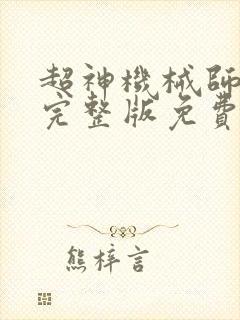 超神機械師
完整版免費
熊梓言